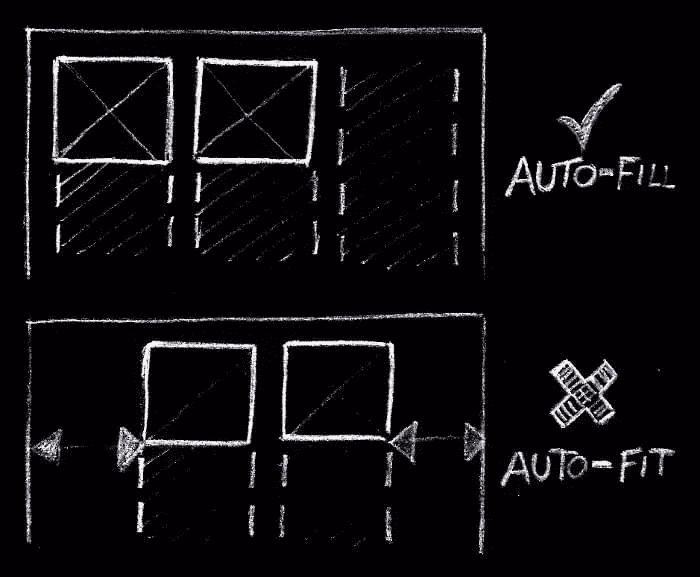 AUTO-FILL
AUTO-FIT